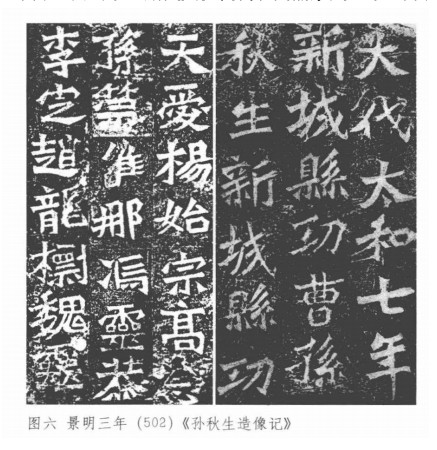 大代太和七年
新城縣功曹孫
秋生新城縣功
天愛楊始宗高
孫惟那馮靈恭
李定趙龍標魏靈
图六 景明三年 (502)《孙秋生造像记》